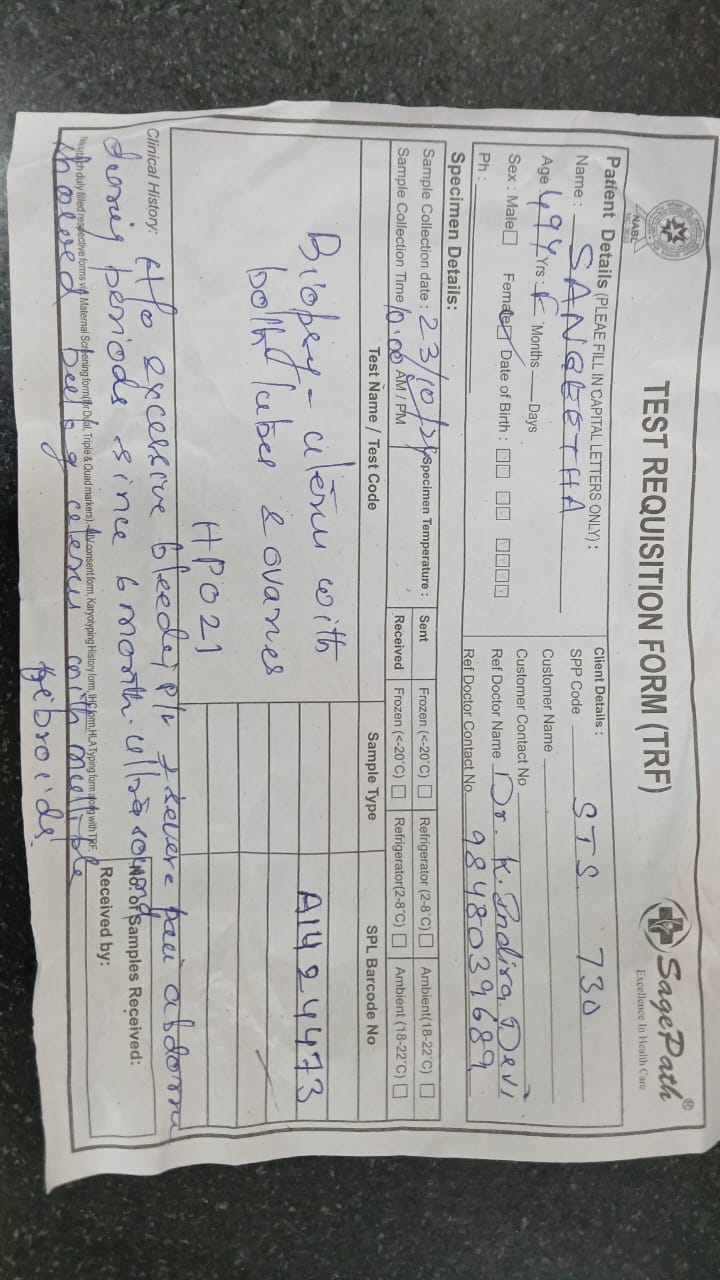 TEST REQUISITION FORM (TRF)
SagePath®
Excellence In Health Care
NABL
Patient Details (PLEAE FILL IN CAPITAL LETTERS ONLY) :
Name : SANGEETHA
Age : 49Y Yrs : F Months — Days
Sex : Male☐ Female☑ Date of Birth : ☐☐ ☐☐ ☐☐☐☐
Ph :
Client Details :
SPP Code STS 730
Customer Name
Customer Contact No
Ref Doctor Name Dr. K. Indira Devi
Ref Doctor Contact No. 9848039689
Specimen Details:
Sample Collection date : 23/10/24 Specimen Temperature : Sent Frozen (<-20°C) ☐ Refrigerator (2-8°C) ☐ Ambient(18-22°C) ☐
Sample Collection Time 10:00 AM / PM Received Frozen (<-20°C) ☐ Refrigerator(2-8°C) ☐ Ambient (18-22°C) ☐
Test Name / Test Code Sample Type SPL Barcode No
Biopsy - uterus with A1424473
both tubes & ovaries
HP021
Clinical History: H/o excessive bleeding P/V severe pain abdomen
during periods since 6 month. ultrasound
No. of Samples Received:
Attach duly filled respective forms viz Maternal Screening form(for Dual, Triple & Quad markers), HIV consent form, Karyotyping History form, IHC form, HLA Typing form along with TRF.
Received by:
showed bulky uterus with multiple
fibroids.